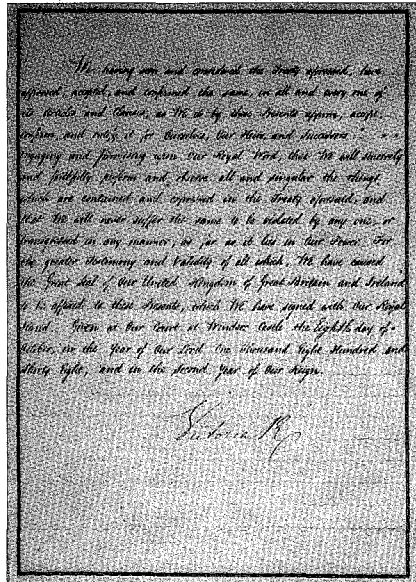 We having seen and considered the Treaty aforesaid, have
approved, accepted, and confirmed the same, in all and every one of
its Articles and Clauses, as We do by these Presents approve, accept,
confirm, and ratify it for Ourselves, Our Heirs and Successors:
Engaging and promising upon Our Royal Word, that We will sincerely
and faithfully perform and observe all and singular the things
which are contained and expressed in the Treaty aforesaid, and
that We will never suffer the same to be violated by any one, or
transgressed in any manner, as far as it lies in Our Power. For
the greater Testimony and Validity of all which, We have caused
the Great Seal of Our United Kingdom of Great Britain and Ireland
to be affixed to these Presents, which We have signed with Our Royal
Hand. Given at Our Court at Windsor Castle the Eighth day of
October, in the Year of Our Lord One Thousand Eight Hundred and
Thirty Eight, and in the Second Year of Our Reign.
Victoria R